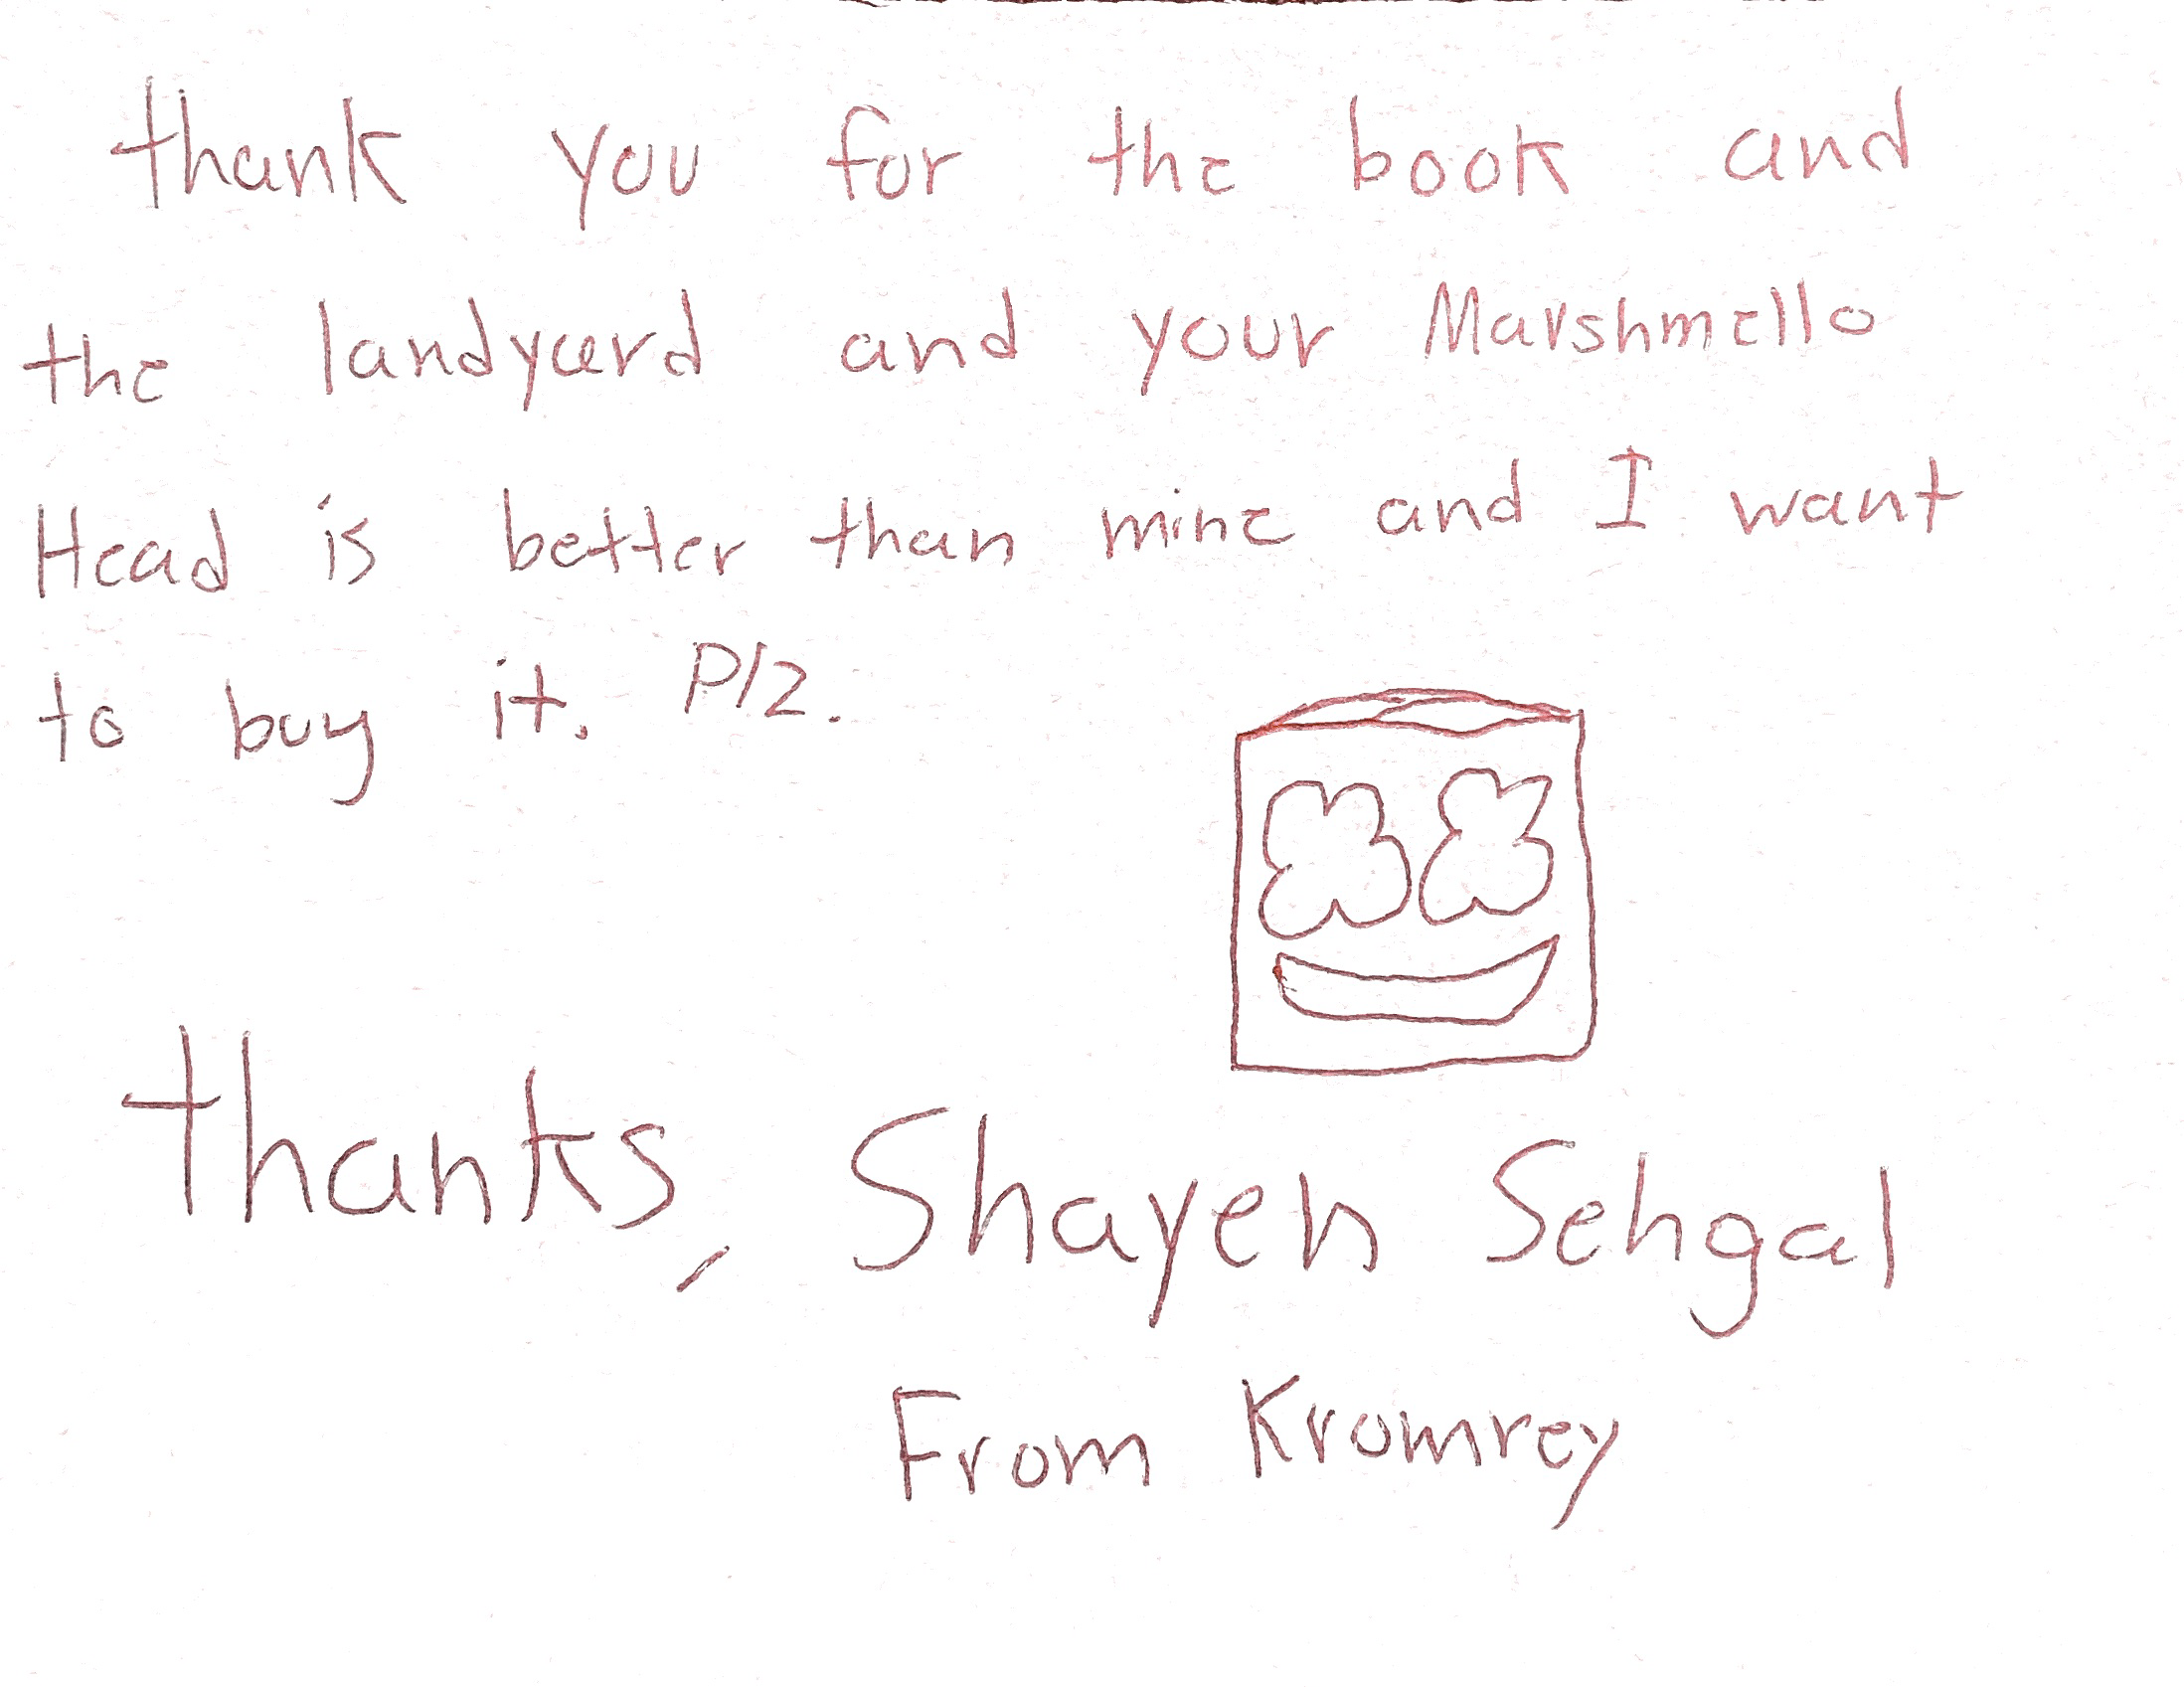 thank you for the book and
the landyard and your Marshmello
Head is better than mine and I want
to buy it. Plz.
thanks, Shayen Sehgal
From Kromrey